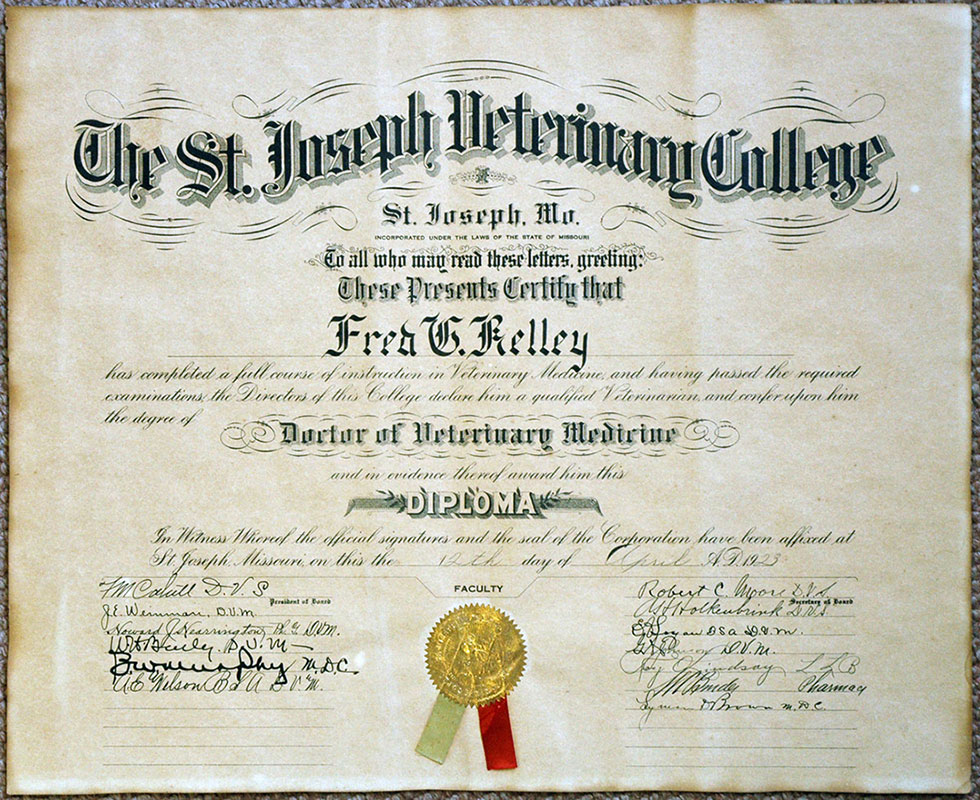 The St. Joseph Veterinary College
St. Joseph, Mo.
INCORPORATED UNDER THE LAWS OF THE STATE OF MISSOURI
To all who may read these letters, greeting:
These Presents Certify that
Fred G. Kelley
has completed a full course of instruction in Veterinary Medicine, and having passed the required
examinations, the Directors of this College declare him a qualified Veterinarian, and confer upon him
the degree of
Doctor of Veterinary Medicine
and in evidence thereof award him this
DIPLOMA
In Witness Whereof the official signatures and the seal of the Corporation have been affixed at
St. Joseph Missouri, on this the 12th day of April A.D. 1923
FACULTY
D.V.S
President of Board
J.E. Weinman, D.V.M.
Howard J. Kearrington, Ph. G. D.V.M.
D.V.M.
M.D.C.
A.E. Nelson B.S.A. D.V.M.
Robert C. Moore D.V.S.
Secretary of Board
Holkenbrink D.V.S
D.V.M.
D.V.M.
Lindsay LLB
Pharmacy
Brown M.D.C.